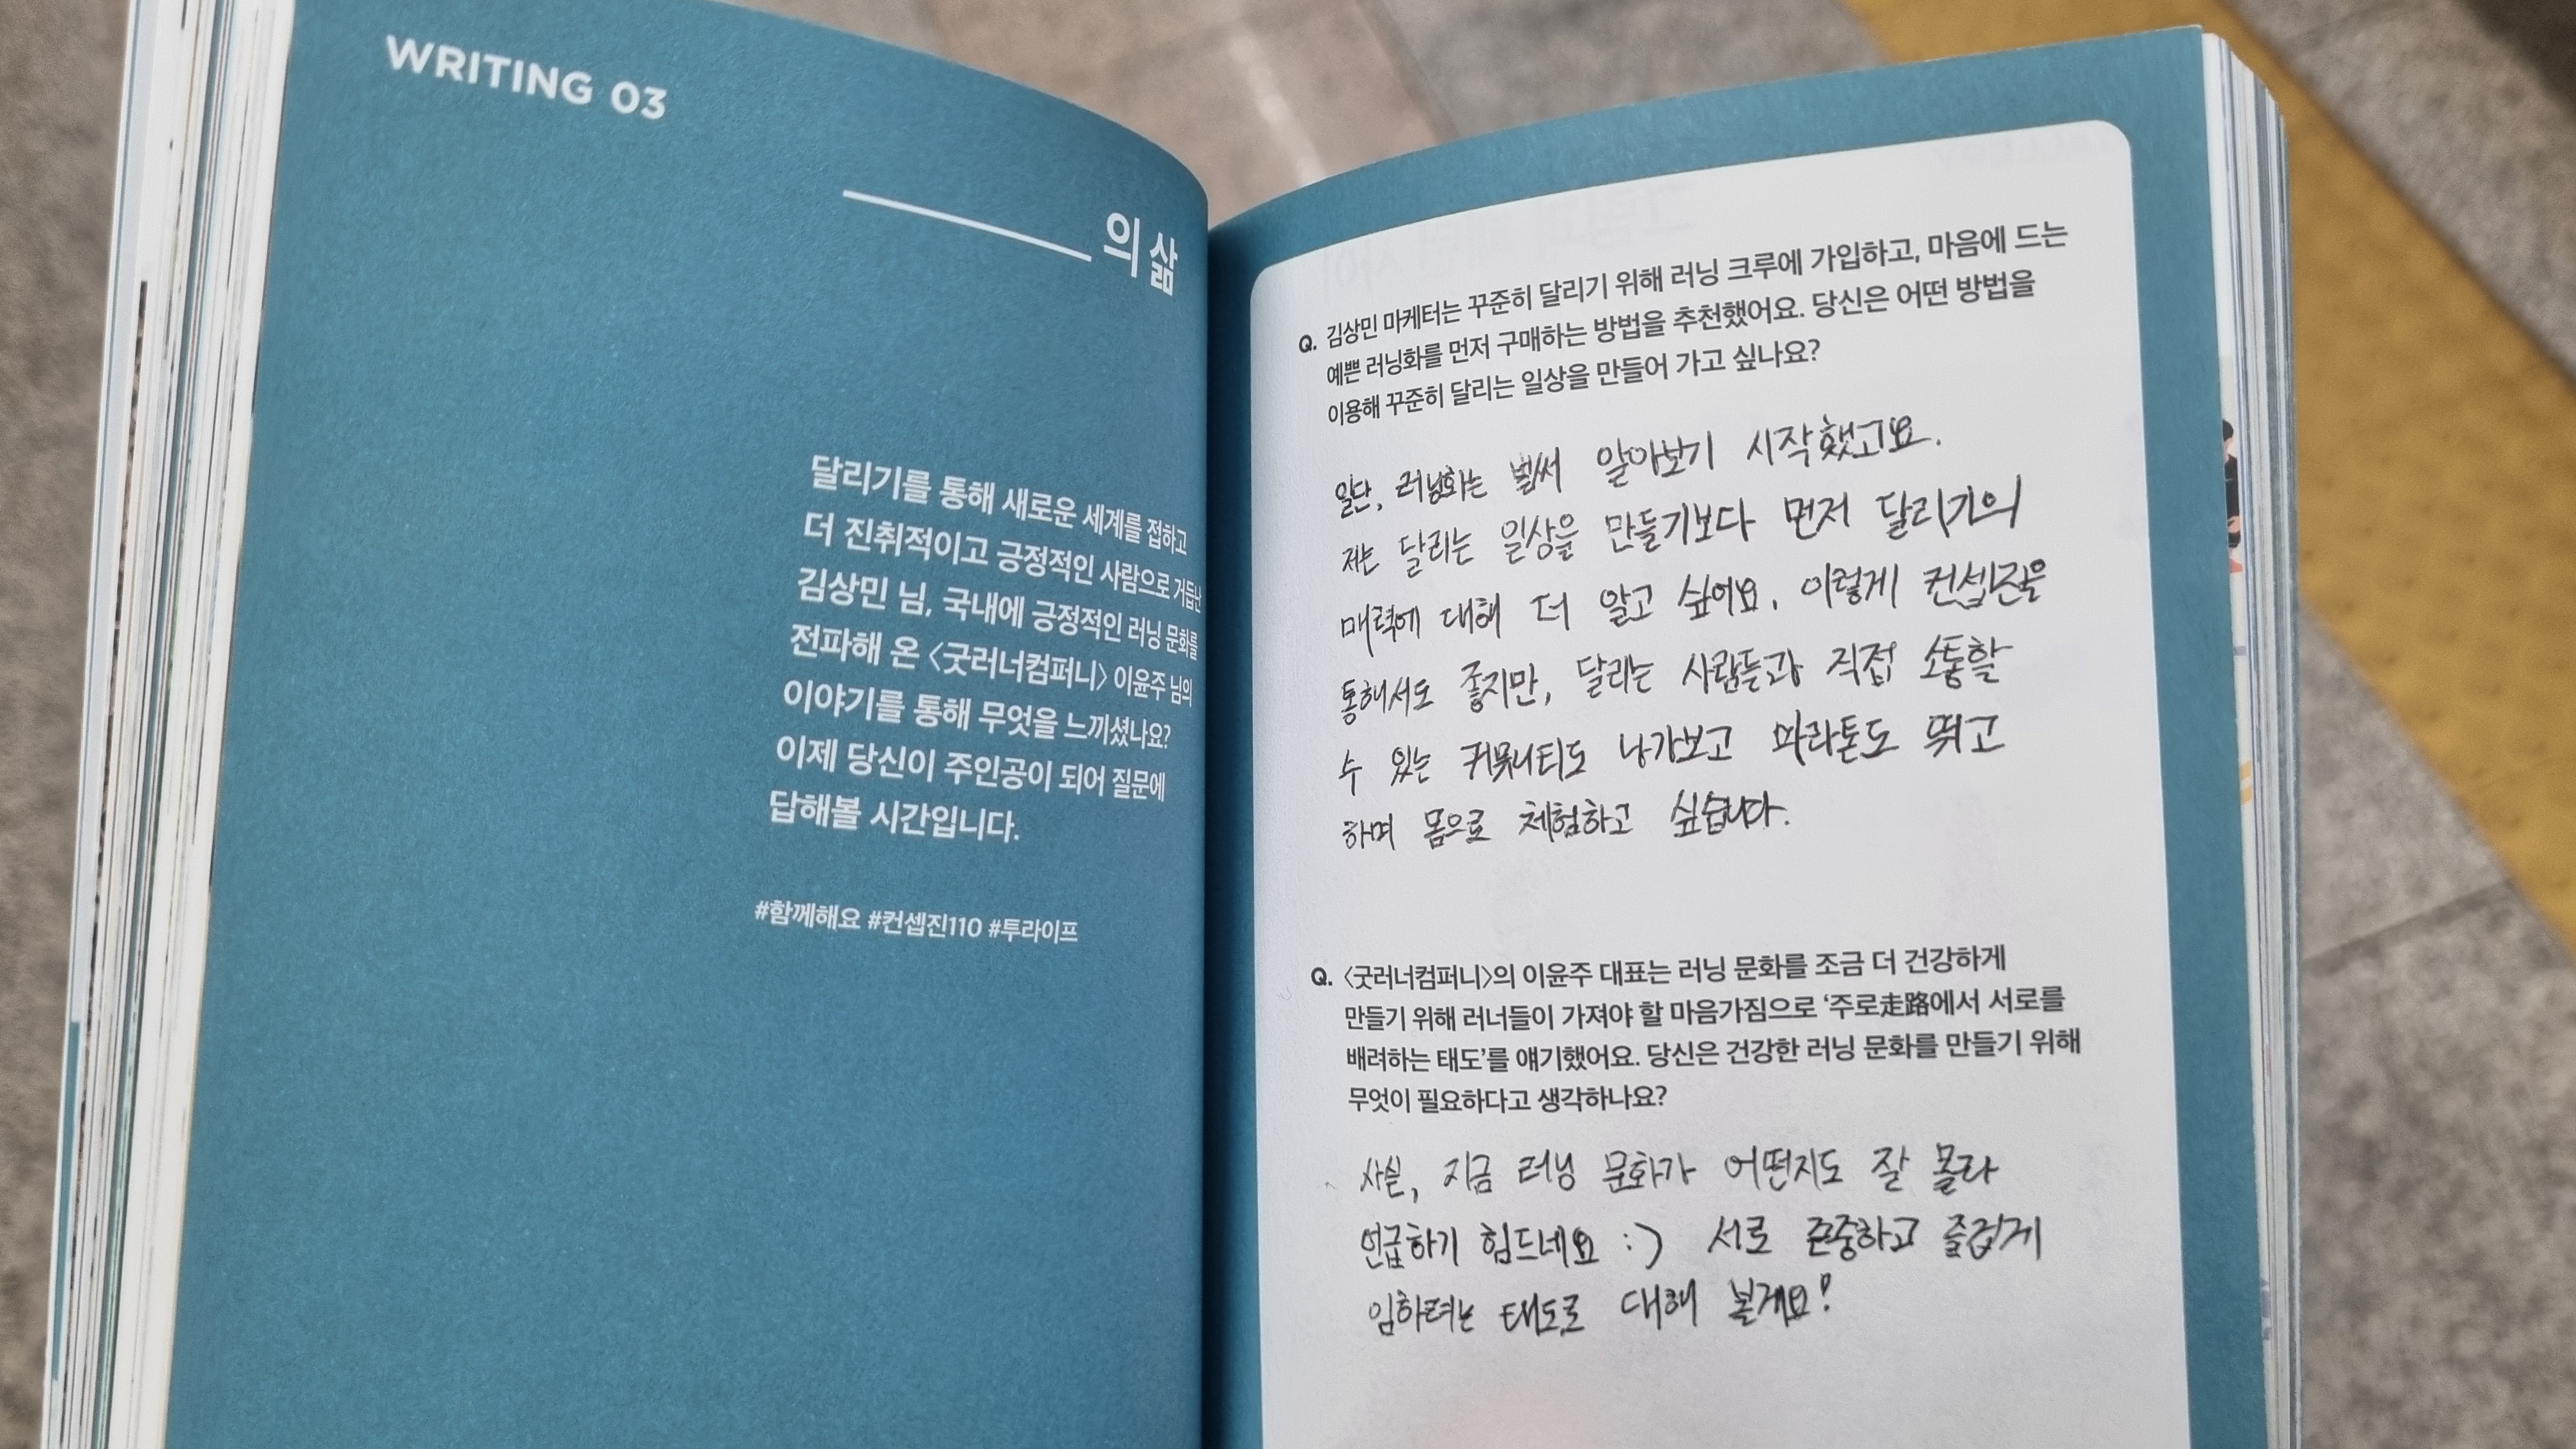 WRITING 03
의 삶
달리기를 통해 새로운 세계를 접하고
더 진취적이고 긍정적인 사람으로 거듭난
김상민 님, 국내에 긍정적인 러닝 문화를
전파해 온 〈굿러너컴퍼니〉 이윤주 님의
이야기를 통해 무엇을 느끼셨나요?
이제 당신이 주인공이 되어 질문에
답해볼 시간입니다.
#함께해요 #컨셉진110 #투라이프
Q. 김상민 마케터는 꾸준히 달리기 위해 러닝 크루에 가입하고, 마음에 드는
예쁜 러닝화를 먼저 구매하는 방법을 추천했어요. 당신은 어떤 방법을
이용해 꾸준히 달리는 일상을 만들어 가고 싶나요?
일단, 러닝화는 벌써 알아보기 시작했고요.
저는 달리는 일상을 만들기보다 먼저 달리기의
매력에 대해 더 알고 싶어요. 이렇게 컨셉진을
통해서도 좋지만, 달리는 사람들과 직접 소통할
수 있는 커뮤니티도 나가보고 마라톤도 뛰고
하며 몸으로 체험하고 싶습니다.
Q. 〈굿러너컴퍼니〉의 이윤주 대표는 러닝 문화를 조금 더 건강하게
만들기 위해 러너들이 가져야 할 마음가짐으로 ‘주로走路에서 서로를
배려하는 태도’를 얘기했어요. 당신은 건강한 러닝 문화를 만들기 위해
무엇이 필요하다고 생각하나요?
사실, 지금 러닝 문화가 어떤지도 잘 몰라
언급하기 힘드네요 :) 서로 존중하고 즐겁게
임하려는 태도로 대해 볼게요!